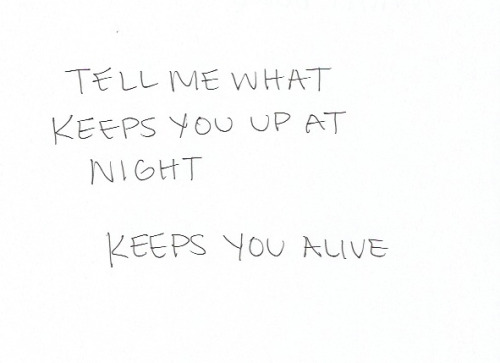 TELL ME WHAT
KEEPS YOU UP AT
NIGHT
KEEPS YOU ALIVE